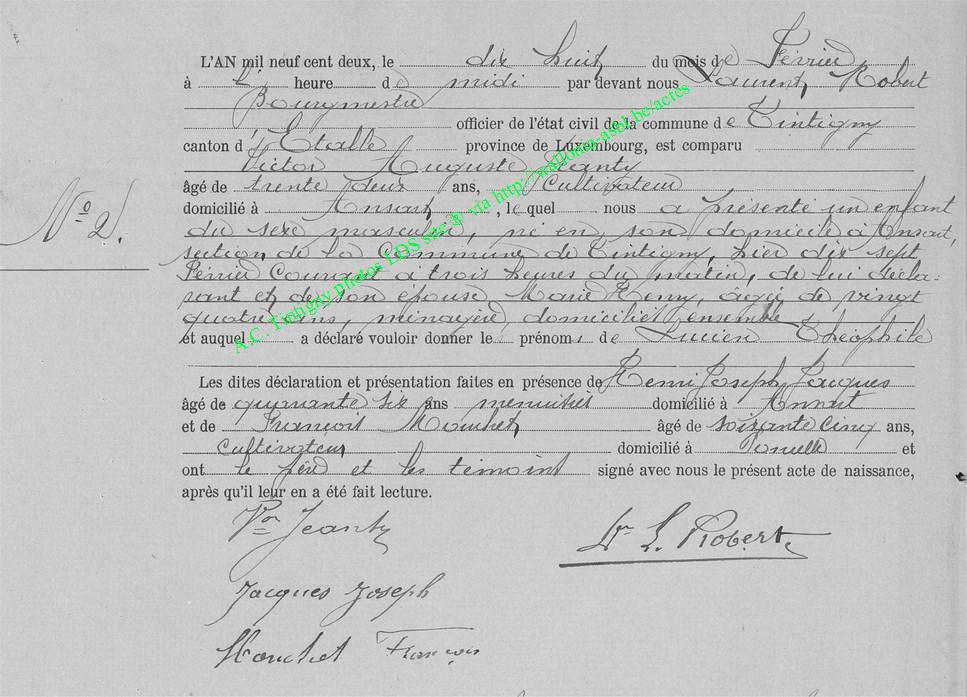 L'AN mil neuf cent deux, le dix huit du mois de Février
à l' heure de midi par devant nous Laurent Robert
Bourgmestre
officier de l'état civil de la commune de Tintigny
canton d'Etalle province de Luxembourg, est comparu
Victor Auguste Jeanty
âgé de trente deux ans, Cultivateur
domicilié à Ansart, lequel nous a présenté un enfant
du sexe masculin, né en son domicile à Ansart,
section de la Commune de Tintigny, hier dix sept
Février courant à trois heures du matin, de lui décla-
rant et de son épouse Marie Remy, âgée de vingt
quatre ans, ménagère, domiciliés ensemble
et auquel a déclaré vouloir donner le prénom, de Lucien Théophile
Les dites déclaration et présentation faites en présence de Remi Joseph Jacques
âgé de quarante six ans menuisier domicilié à Ansart
et de François Mouchet âgé de soixante cinq ans,
Cultivateur domicilié à et
ont le père et les témoins signé avec nous le présent acte de naissance,
après qu'il leur en a été fait lecture.
Vor Jeanty
Dr L. Robert
Jacques Joseph
Mouchet François
No 2.
A.C. Tintigny photos LDS site & via http://wallonia-asbl.be/actes